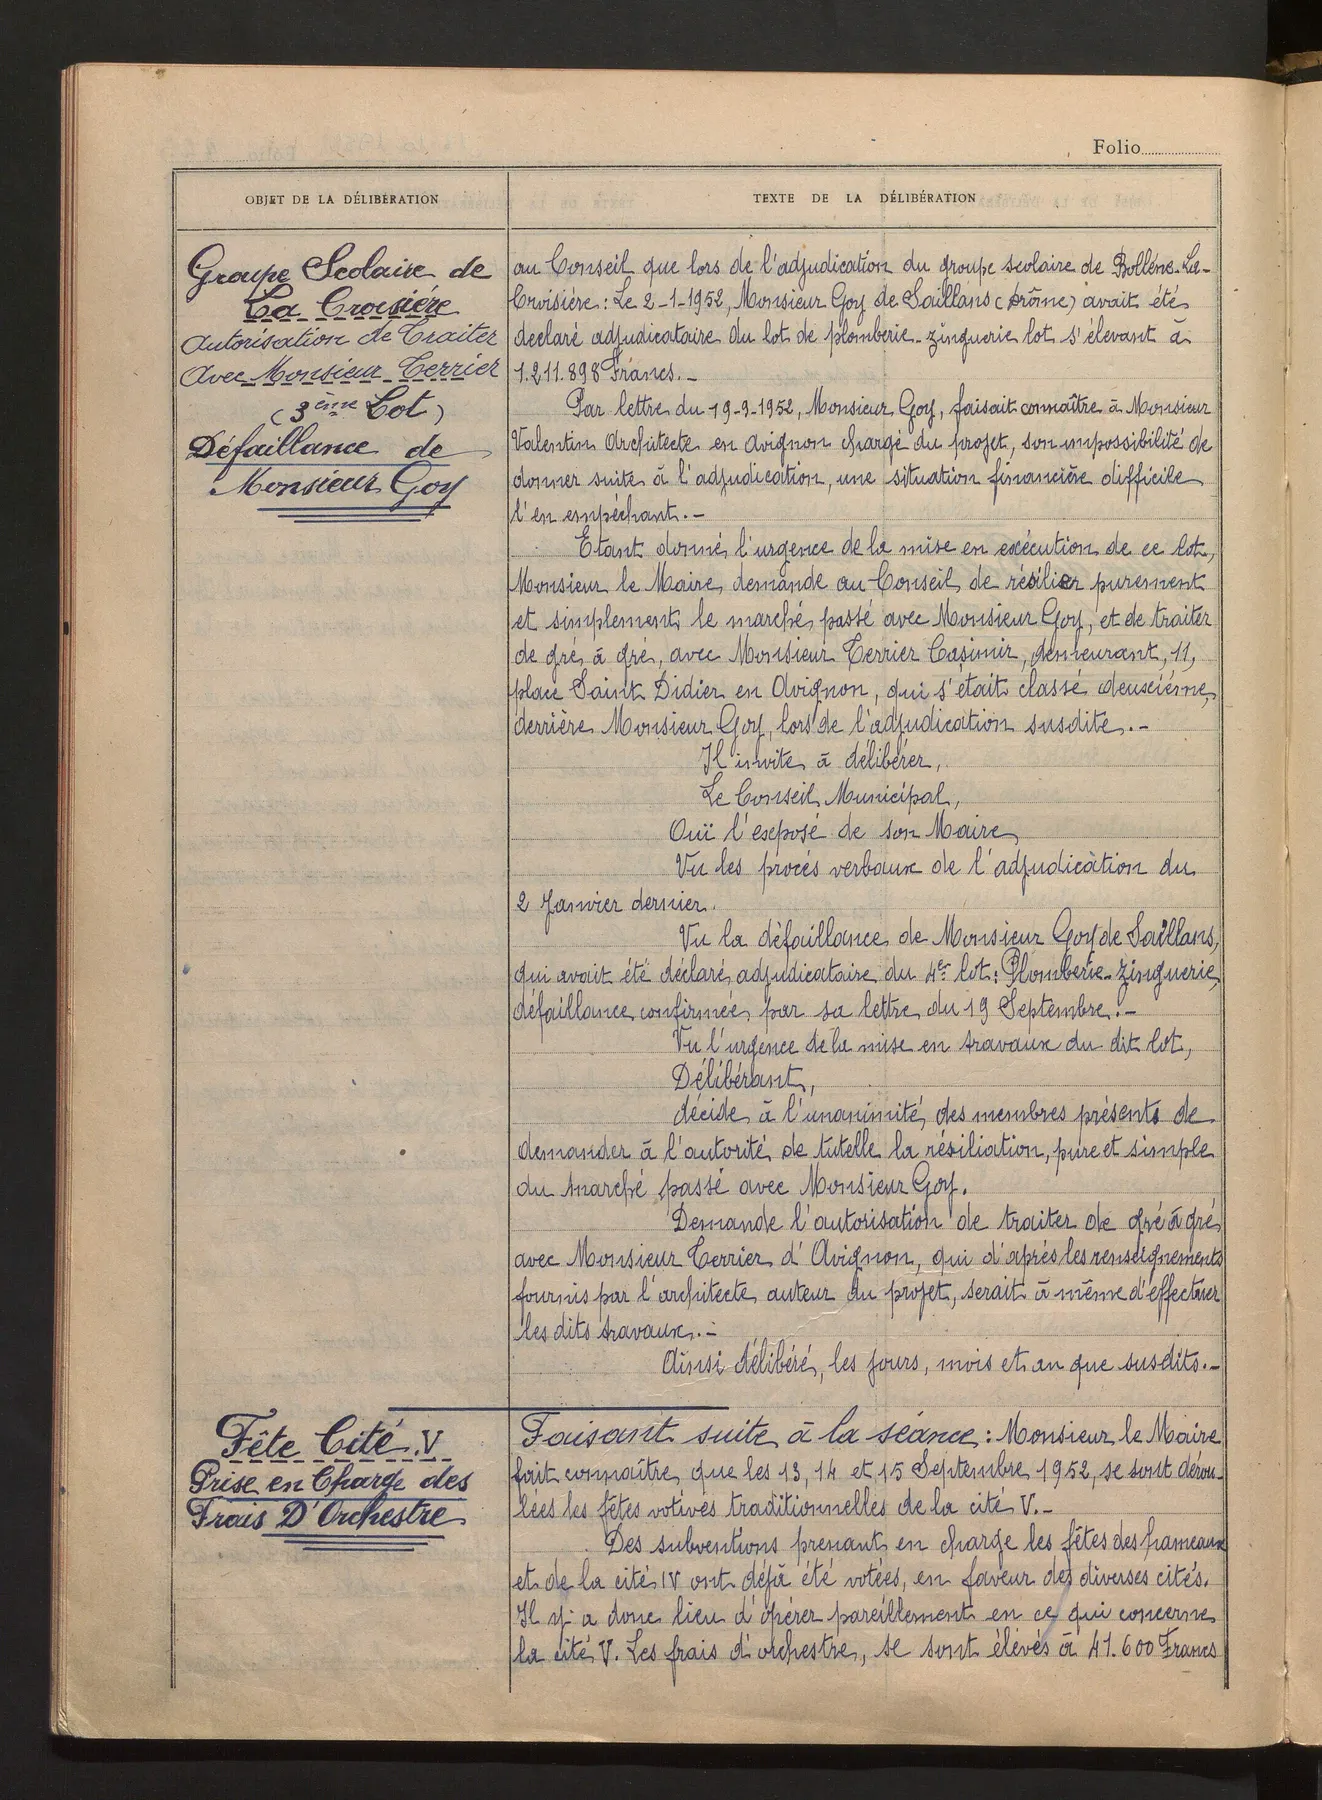 Folio
OBJET DE LA DÉLIBÉRATION
TEXTE DE LA DÉLIBÉRATION
Groupe Scolaire de
La Croisière
Autorisation de Traiter
Avec Monsieur Terrier
(3ème Lot)
Défaillance de
Monsieur Goy
au Conseil que lors de l'adjudication du groupe scolaire de Bollène-La-
Croisière: Le 2-1-1952, Monsieur Goy de Saillans (Drôme) avait été
declaré adjudicataire du lot de plomberie-zinguerie lot s'élevant à
1.211.898 Francs.-
Par lettre du 19-9-1952, Monsieur Goy, faisait connaître à Monsieur
Valentin Architecte en Avignon chargé du projet, son impossibilité de
donner suite à l'adjudication, une situation financière difficile
l'en empéchant.-
Etant donné l'urgence de la mise en exécution de ce lot,
Monsieur le Maire demande au Conseil de résilier purement
et simplement le marché passé avec Monsieur Goy, et de traiter
de gré à gré, avec Monsieur Terrier Casimir, demeurant, 11,
place Saint Didier en Avignon, qui s'était classé deuxième,
derrière Monsieur Goy, lors de l'adjudication susdite.-
Il invite à délibérer,
Le Conseil Municipal,
Ouï l'exposé de son Maire,
Vu les procés verbaux de l'adjudication du
2 Janvier dernier.
Vu la défaillance de Monsieur Goy de Saillans,
qui avait été déclaré adjudicataire du 4er lot: Plomberie-zinguerie,
défaillance confirmée par sa lettre du 19 Septembre.-
Vu l'urgence de la mise en travaux du dit lot,
Délibérant,
décide à l'unanimité des membres présents de
demander à l'autorité de tutelle la résiliation, pure et simple
du marché passé avec Monsieur Goy.
Demande l'autorisation de traiter de gré à gré
avec Monsieur Terrier d'Avignon, qui d'aprés les renseignements
fournis par l'architecte auteur du projet, serait à même d'effectuer
les dits travaux.-
Ainsi délibéré, les jours, mois et an que susdits.-
Fête Cité V
Prise en Charge des
Frais D'Orchestre
Faisant suite à la séance: Monsieur le Maire
fait connaître que les 13, 14 et 15 Septembre 1952, se sont dérou-
lées les fêtes votives traditionnelles de la cité V.-
Des subventions prenant en charge les fêtes des hameaux
et de la cité IV ont déjà été votées, en faveur des diverses cités.
Il y a donc lieu d'opérer pareillement en ce qui concerne
la cité V. Les frais d'orchestre, se sont élevés à 41.600 Francs